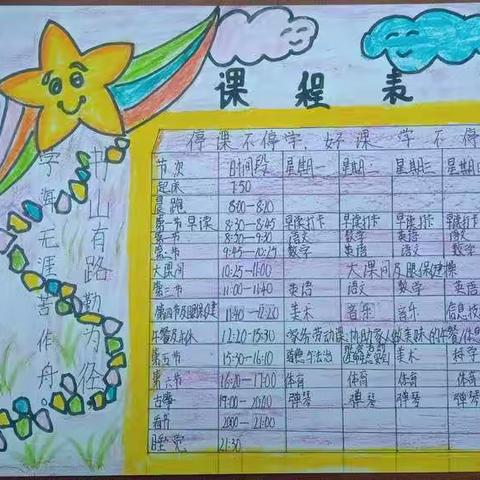 课程表
书山有路勤为径
学海无涯苦作舟。
停课不停学,好课 学不停
节次 时间段 星期一 星期二 星期三 星期四
起床 7:50
晨跑 8:00—8:20
第一节早读 8:30—8:45 早读打卡 早读打卡 早读打卡 早读打卡
第一节 8:50—9:30 语文 数学 英语 语文
第二节 9:45—10:25 数学 英语 语文 数学
大课间 10:25—11:00 大课间及眼保健操
第三节 11:00—11:40 英语 语文 数学 英语
第四节及眼保健 11:40—12:20 美术 音乐 音乐 信息技
午餐及午休 12:20—15:30 家务劳动课,协助家人做美味的午餐/休息
第五节 15:30—16:10 道德与法治 美术 科学
第六节 16:20—17:00 体育 体育 体育 体育
古筝 19:00—20:00 弹琴 弹琴 弹琴 弹琴
看书 2000—21:00
睡觉 21:30